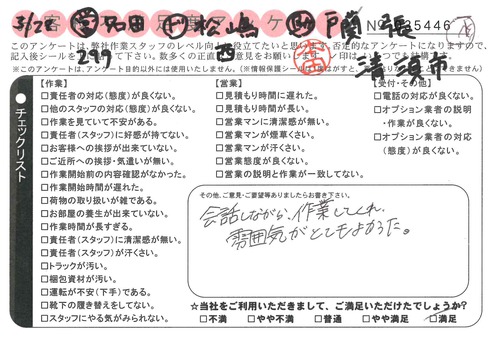 3/28 営 品田 作 松嶋 助 戸蘭 張
297 西 清須市
客 ケ
NO 35446
このアンケートは、弊社作業スタッフのレベル向 役立てたいと思い 否定的なアンケートになりますので、
記入後シールを て下さい。数多くの正直 意見をお願いします。
※このアンケートは、アンケート目的以外には使用いたしません。
チェックリスト
【作業】
□責任者の対応(態度)が良くない。
□他のスタッフの対応(態度)が良くない。
□作業を見ていて不安がある。
□責任者(スタッフ)に好感が持てない。
□お客様への挨拶が出来ていない。
□ご近所への挨拶・気遣いが無い。
□作業開始前の内容確認がなかった。
□作業開始時間が遅れた。
□荷物の取り扱いが雑である。
□お部屋の養生が出来ていない。
□作業時間が長すぎる。
□責任者(スタッフ)に清潔感が無い。
□責任者(スタッフ)が汗くさい。
□トラックが汚い。
□梱包資材が汚い。
□運転が不安(下手)である。
□靴下の履き替えをしてない。
□スタッフにやる気がみられない。
【営業】
□見積もり時間に遅れた。
□見積もり時間が長い。
□営業マンに清潔感が無い。
□営業マンが煙草くさい。
□営業マンが汗くさい。
□営業態度が良くない。
□営業の説明と作業が一致してない。
【受付・その他】
□電話の対応が良くない。
□オプション業者の説明
・作業が良くない。
□オプション業者の対応
(態度)が良くない。
その他、ご意見・ご要望等ありましたらお書き下さい。
会話しながら、作業してくれ、
雰囲気がとてもよかった。
☆当社をご利用いただきまして、ご満足いただけたでしょうか?
□不満 □やや不満 □普通 □やや満足 □満足